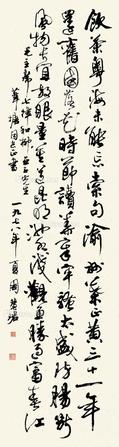 飲茶粵海未能忘索句渝州葉正黃三十一年
還舊國落花時節讀華章牢騷太盛防腸斷
風物長宜放眼量莫道昆明池水淺觀魚勝過富春江
毛主席七律和柳亞子先生
同志正書
一九七八年夏周慧珺